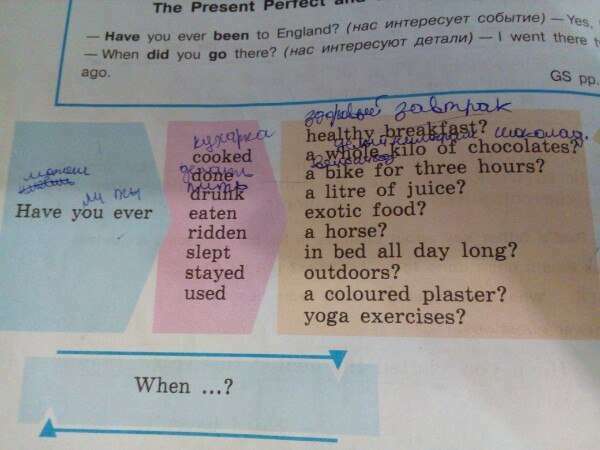 The Present Perfect and
— Have you ever been to England? (нас интересует событие) — Yes,
— When did you go there? (нас интересуют детали) — I went there
ago.
GS pp.
здоровый завтрак
кухарка
healthy breakfast?
шоколад.
cooked
a whole kilo of chocolates?
done
a bike for three hours?
пить
drunk
a litre of juice?
ли ты
Have you ever
eaten
exotic food?
ridden
a horse?
slept
in bed all day long?
stayed
outdoors?
used
a coloured plaster?
yoga exercises?
When ...?